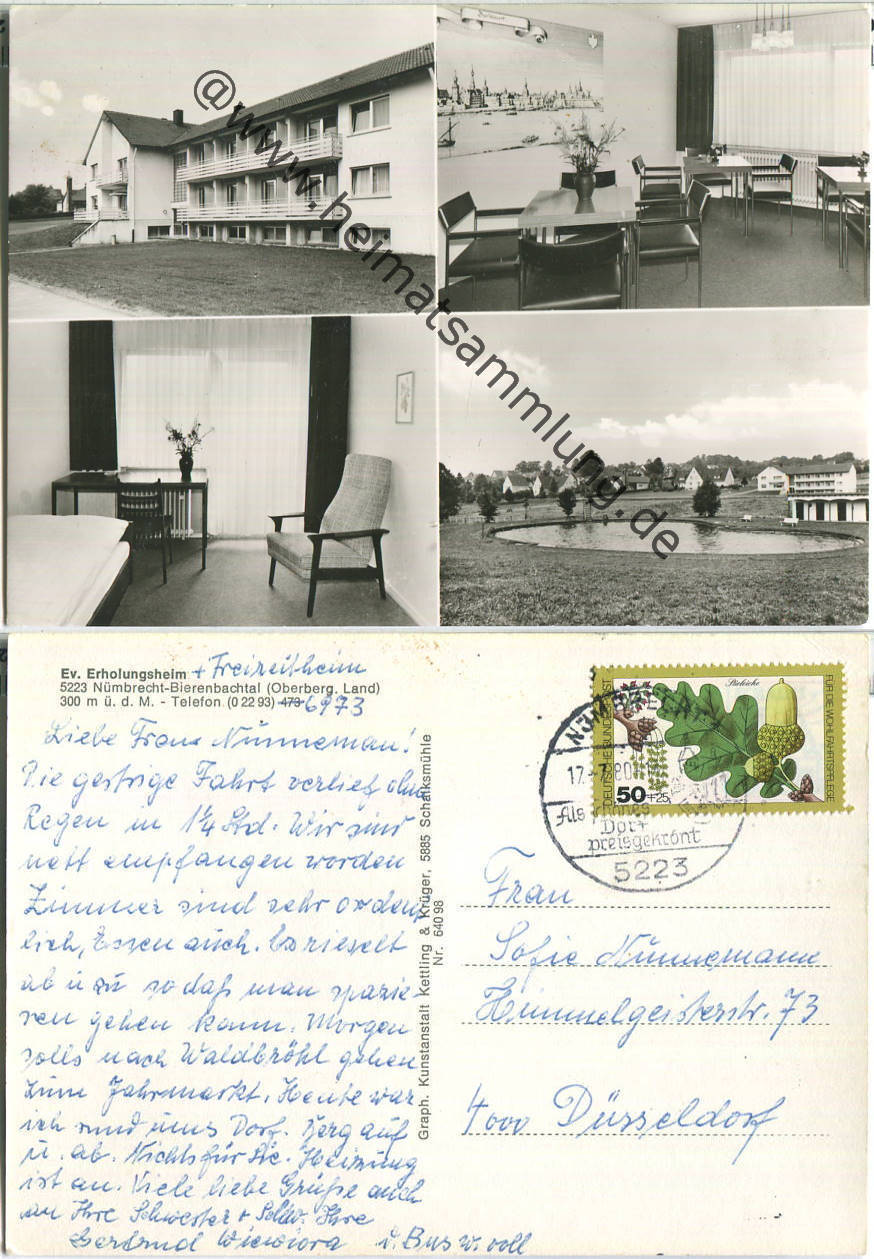 @www.heimatsammlung.de
Ev. Erholungsheim + Freizeitheim
5223 Nümbrecht-Bierenbachtal (Oberberg. Land)
300 m ü. d. M. - Telefon (0 22 93) 473 6973
Liebe Frau Nünneman!
Die gestrige Fahrt verlief ohne
Regen in 1¼ Std. Wir sind
nett empfangen worden
Zimmer sind sehr ordent
lich, Essen auch. Es rieselt
ab u zu so daß man spazie-
ren gehen kann. Morgen
solls nach Waldbröhl gehen
zum Jahrmarkt. Heute war
ich rund ums Dorf. Berg auf
u. ab. Nichts für Sie. Heizung
ist an. Viele liebe Grüße auch
an Ihre Schwester + Schw. Ihre
Gertrud Wiewiora u. Bus w. voll
Graph. Kunstanstalt Kettling & Krüger, 5885 Schalksmühle
Nr. 640 98
Stieleiche
DEUTSCHE BUNDESPOST
FÜR DIE WOHLFAHRTSPFLEGE
50+25
NÜMBRECHT
17.-7.80
Als schönes
Dorf
preisgekrönt
5223
Frau
Sofie Nünnemann
Himmelgeisterstr. 73
4000 Düsseldorf